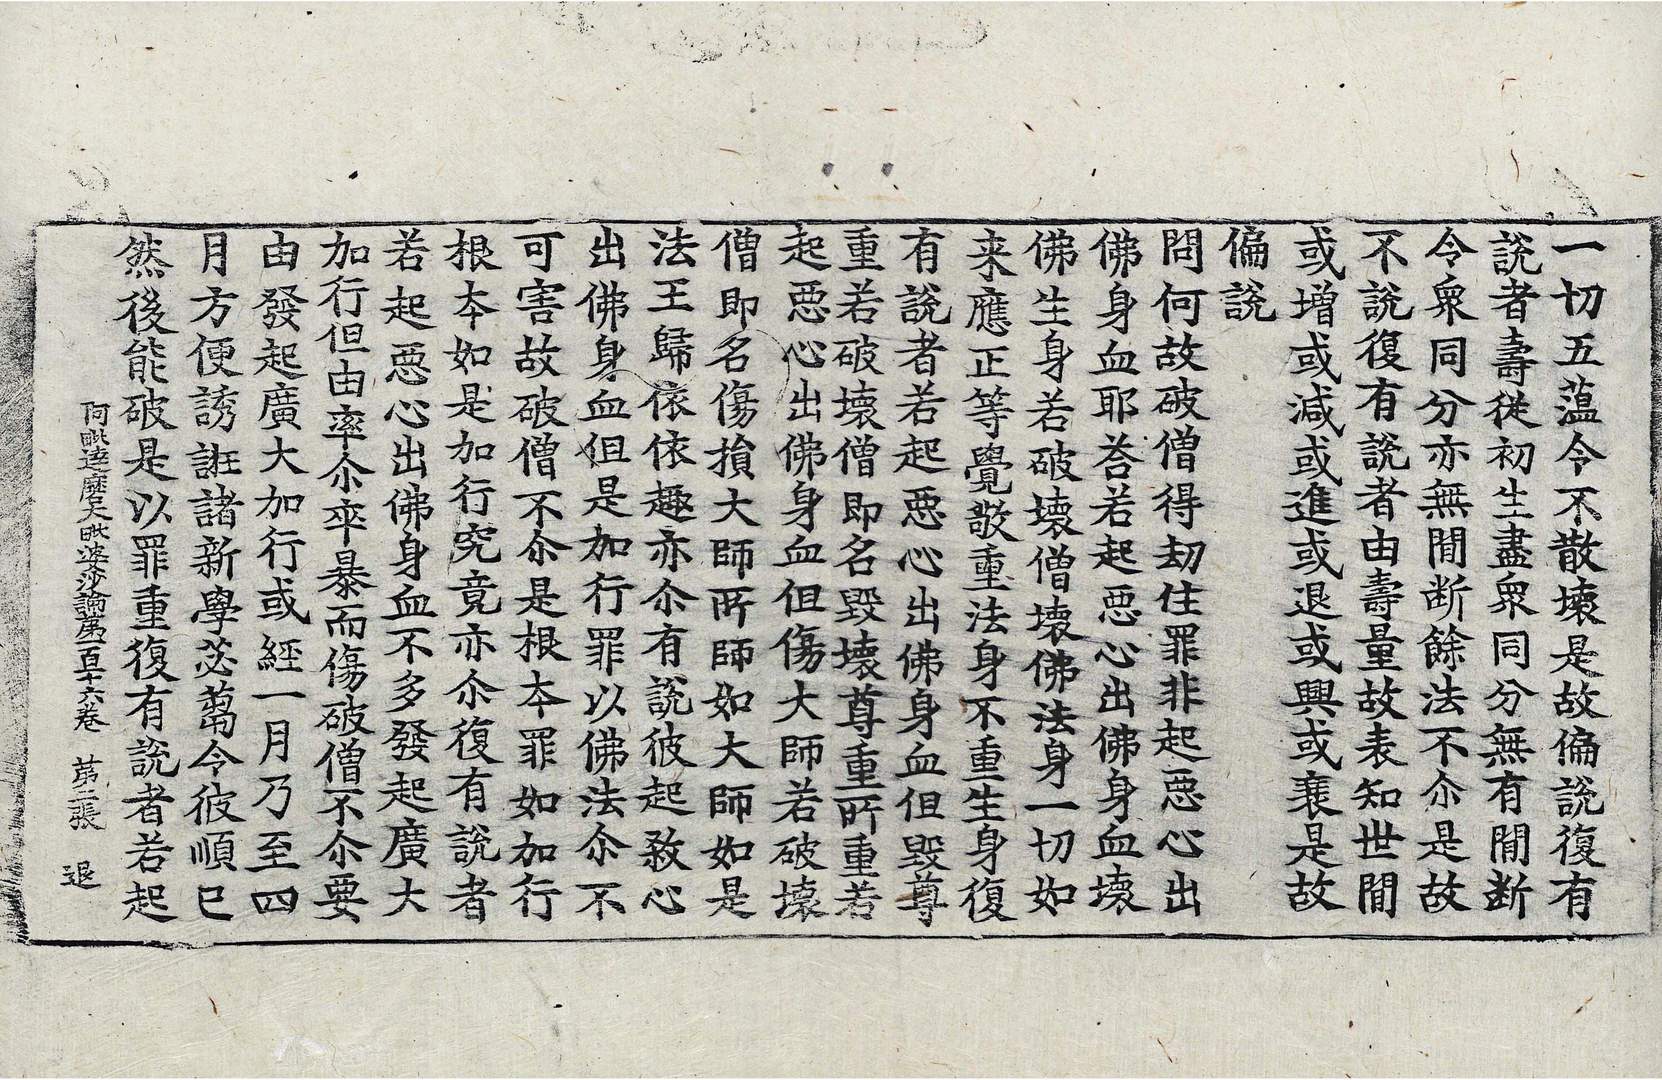 一切五蘊令不散壞是故偏說復有
說者壽從初生盡衆同分無有間斷
令衆同分亦無間斷餘法不尒是故
不說復有說者由壽量故表知世間
或增或減或進或退或興或衰是故
偏說
問何故破僧得劫住罪非起惡心出
佛身血耶荅若起惡心出佛身血壞
佛生身若破壞僧壞佛法身一切如
来應正等覺敬重法身不重生身復
有說者若起惡心出佛身血但毀尊
重若破壞僧即名毀壞尊重所重若
起惡心出佛身血但傷大師若破壞
僧即名傷損大師所師如大師如是
法王歸依依趣亦尒有說彼起敎心
出佛身血但是加行罪以佛法尒不
可害故破僧不尒是根本罪如加行
根本如是加行究竟亦尒復有說者
若起惡心出佛身血不多發起廣大
加行但由率尒卒暴而傷破僧不尒要
由發起廣大加行或經一月乃至四
月方便誘誑諸新學苾蒭令彼順已
然後能破是以罪重復有說者若起
阿毗達磨大毗婆沙論第一百十六卷　第二張　退